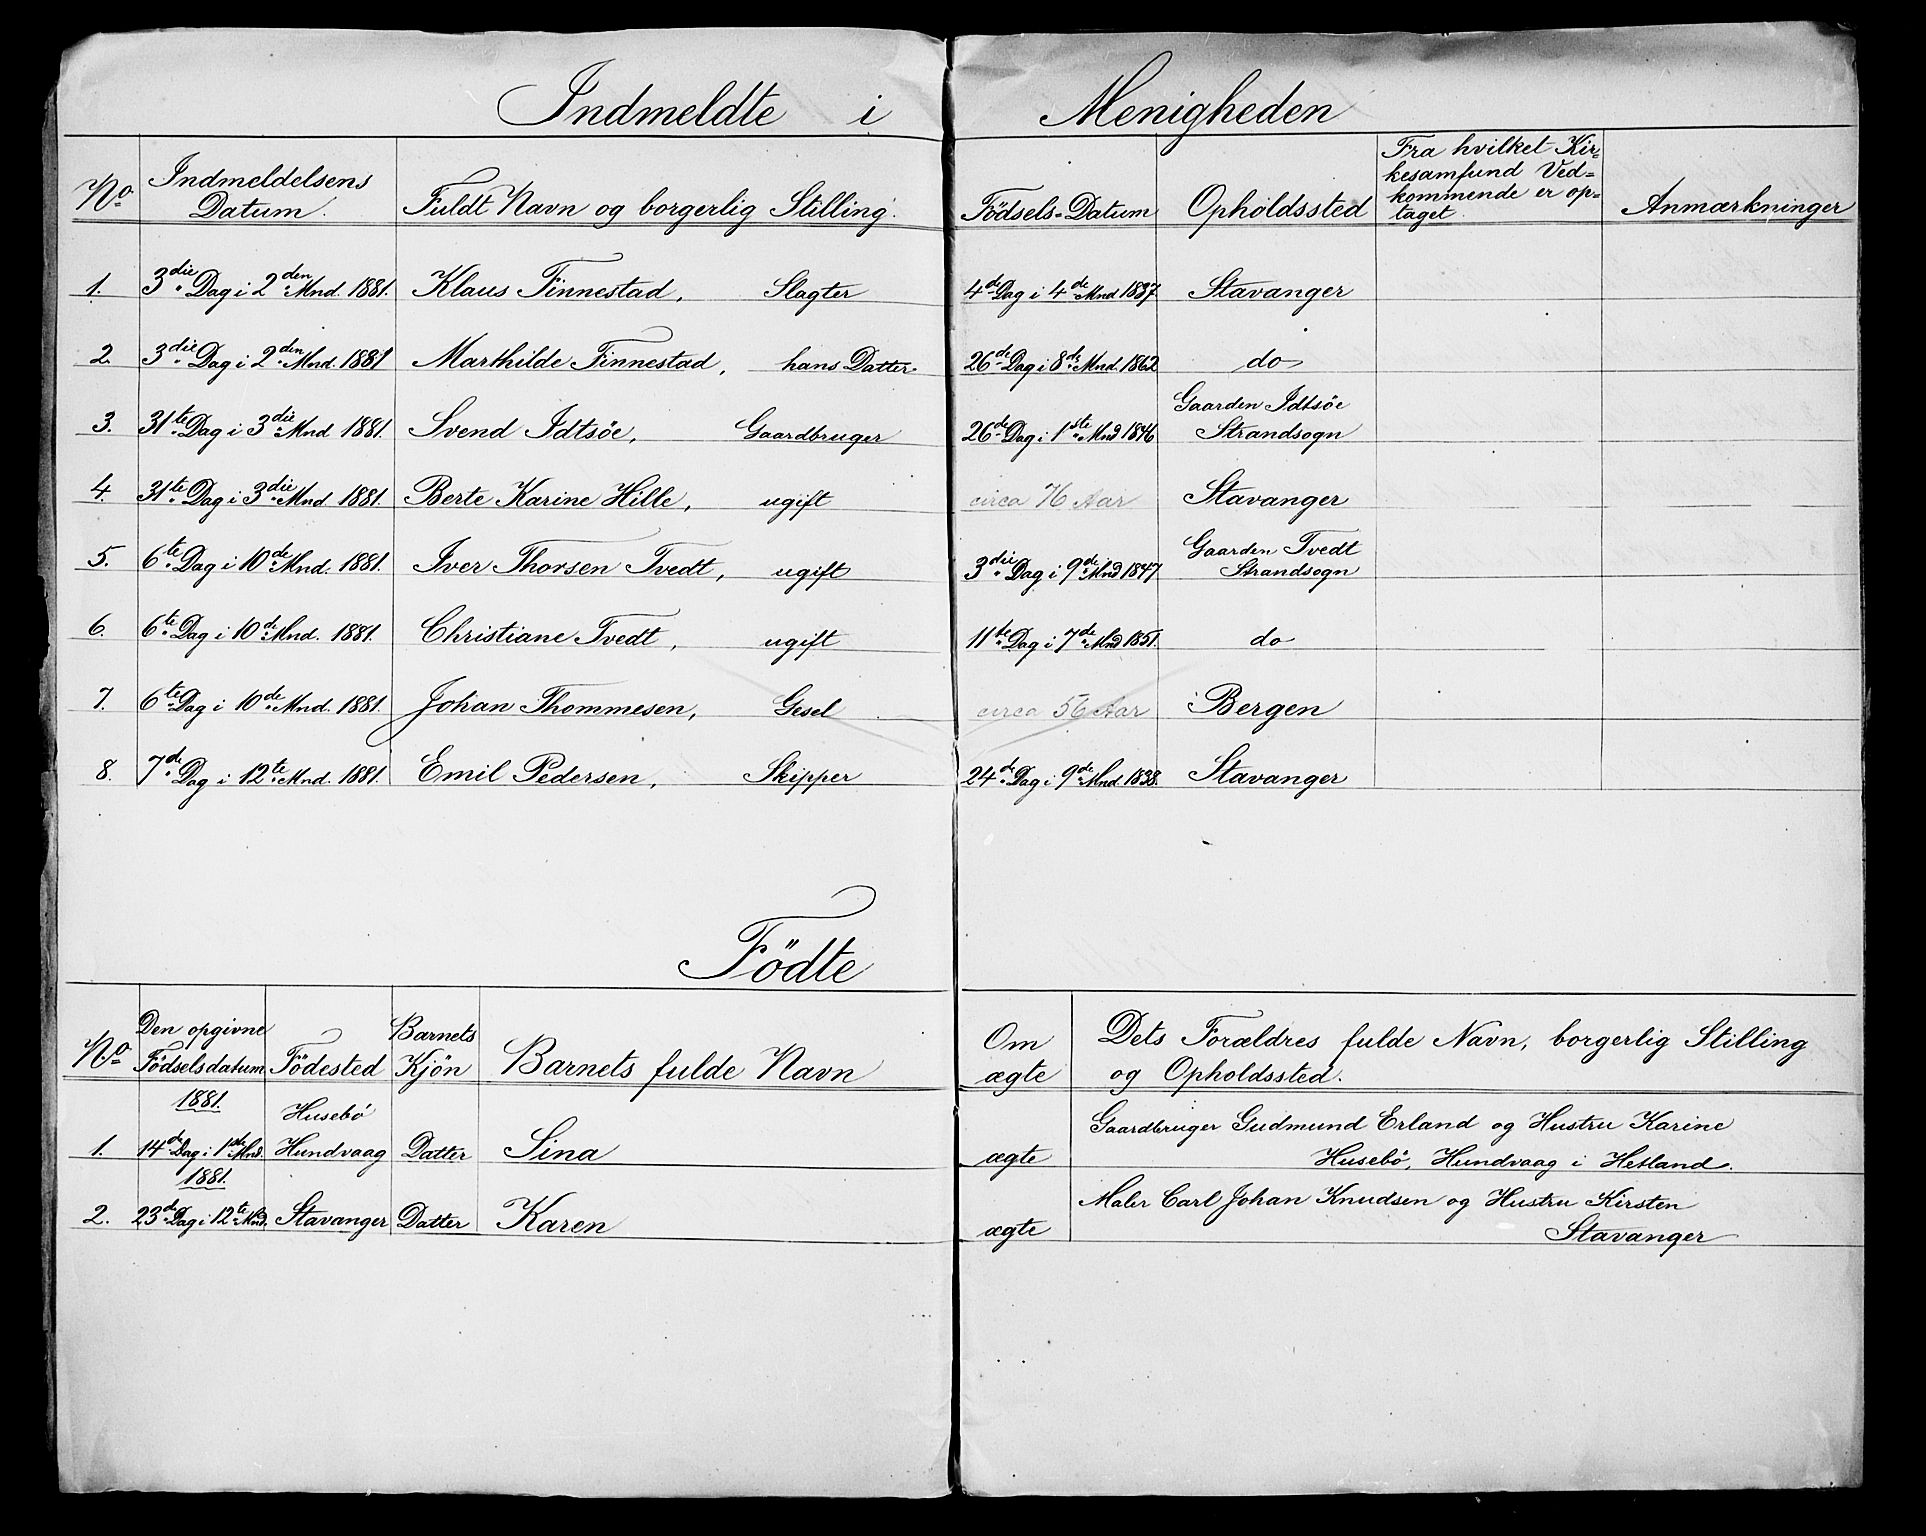 Indmeldte i Menigheden
No Indmeldelsens Datum. Fuldt Navn og borgerlig Stilling. Födsels-Datum Opholdssted Fra hvilket Kir-kesamfund Ved-kommende er op-taget. Anmærkninger
1. 3die Dag i 2den Mnd. 1881. Klaus Finnestad, Slagter 4de Dag i 4de Mnd 1837 Stavanger
2. 3die Dag i 2den Mnd. 1881 Marthilde Finnestad, hans Datter. 26de Dag i 8de Mnd. 1862 do
3. 31te Dag i 3die Mnd 1881. Svend Idtsöe, Gaardbruger 26de Dag i 1ste Mnd 1846 Gaarden Idtsöe Strandsogn
4. 31te Dag i 3die Mnd. 1881. Berte Karine Hille, ugift circa 76 Aar Stavanger
5. 6te Dag i 10de Mnd. 1881. Iver Thorsen Tvedt, ugift 3die Dag i 9de Mnd 1847 Gaarden Tvedt Strandsogn
6. 6te Dag i 10de Mnd. 1881. Christiane Tvedt, ugift 11te Dag i 7de Mnd 1851. do
7. 6te Dag i 10de Mnd. 1881. Johan Thommesen, Gesel circa 56 Aar Bergen
8. 7de Dag i 12te Mnd. 1881. Emil Pedersen, Skipper 24de Dag i 9de Mnd. 1838. Stavanger
Födte
No Den opgivne Födselsdatum Födested Barnets Kjön Barnets fulde Navn Om ægte Dets Forældres fulde Navn, borgerlig Stilling og Opholdssted.
1881.
1. 14de Dag i 1ste Mnd. Husebö Hundvaag Datter Sina ægte Gaardbruger Gudmund Erland og Hustru Karine
Husebö, Hundvaag i Hetland.
1881.
2. 23de Dag i 12te Mnd. Stavanger Datter Karen ægte Maler Carl Johan Knudsen og Hustru Kirsten
Stavanger